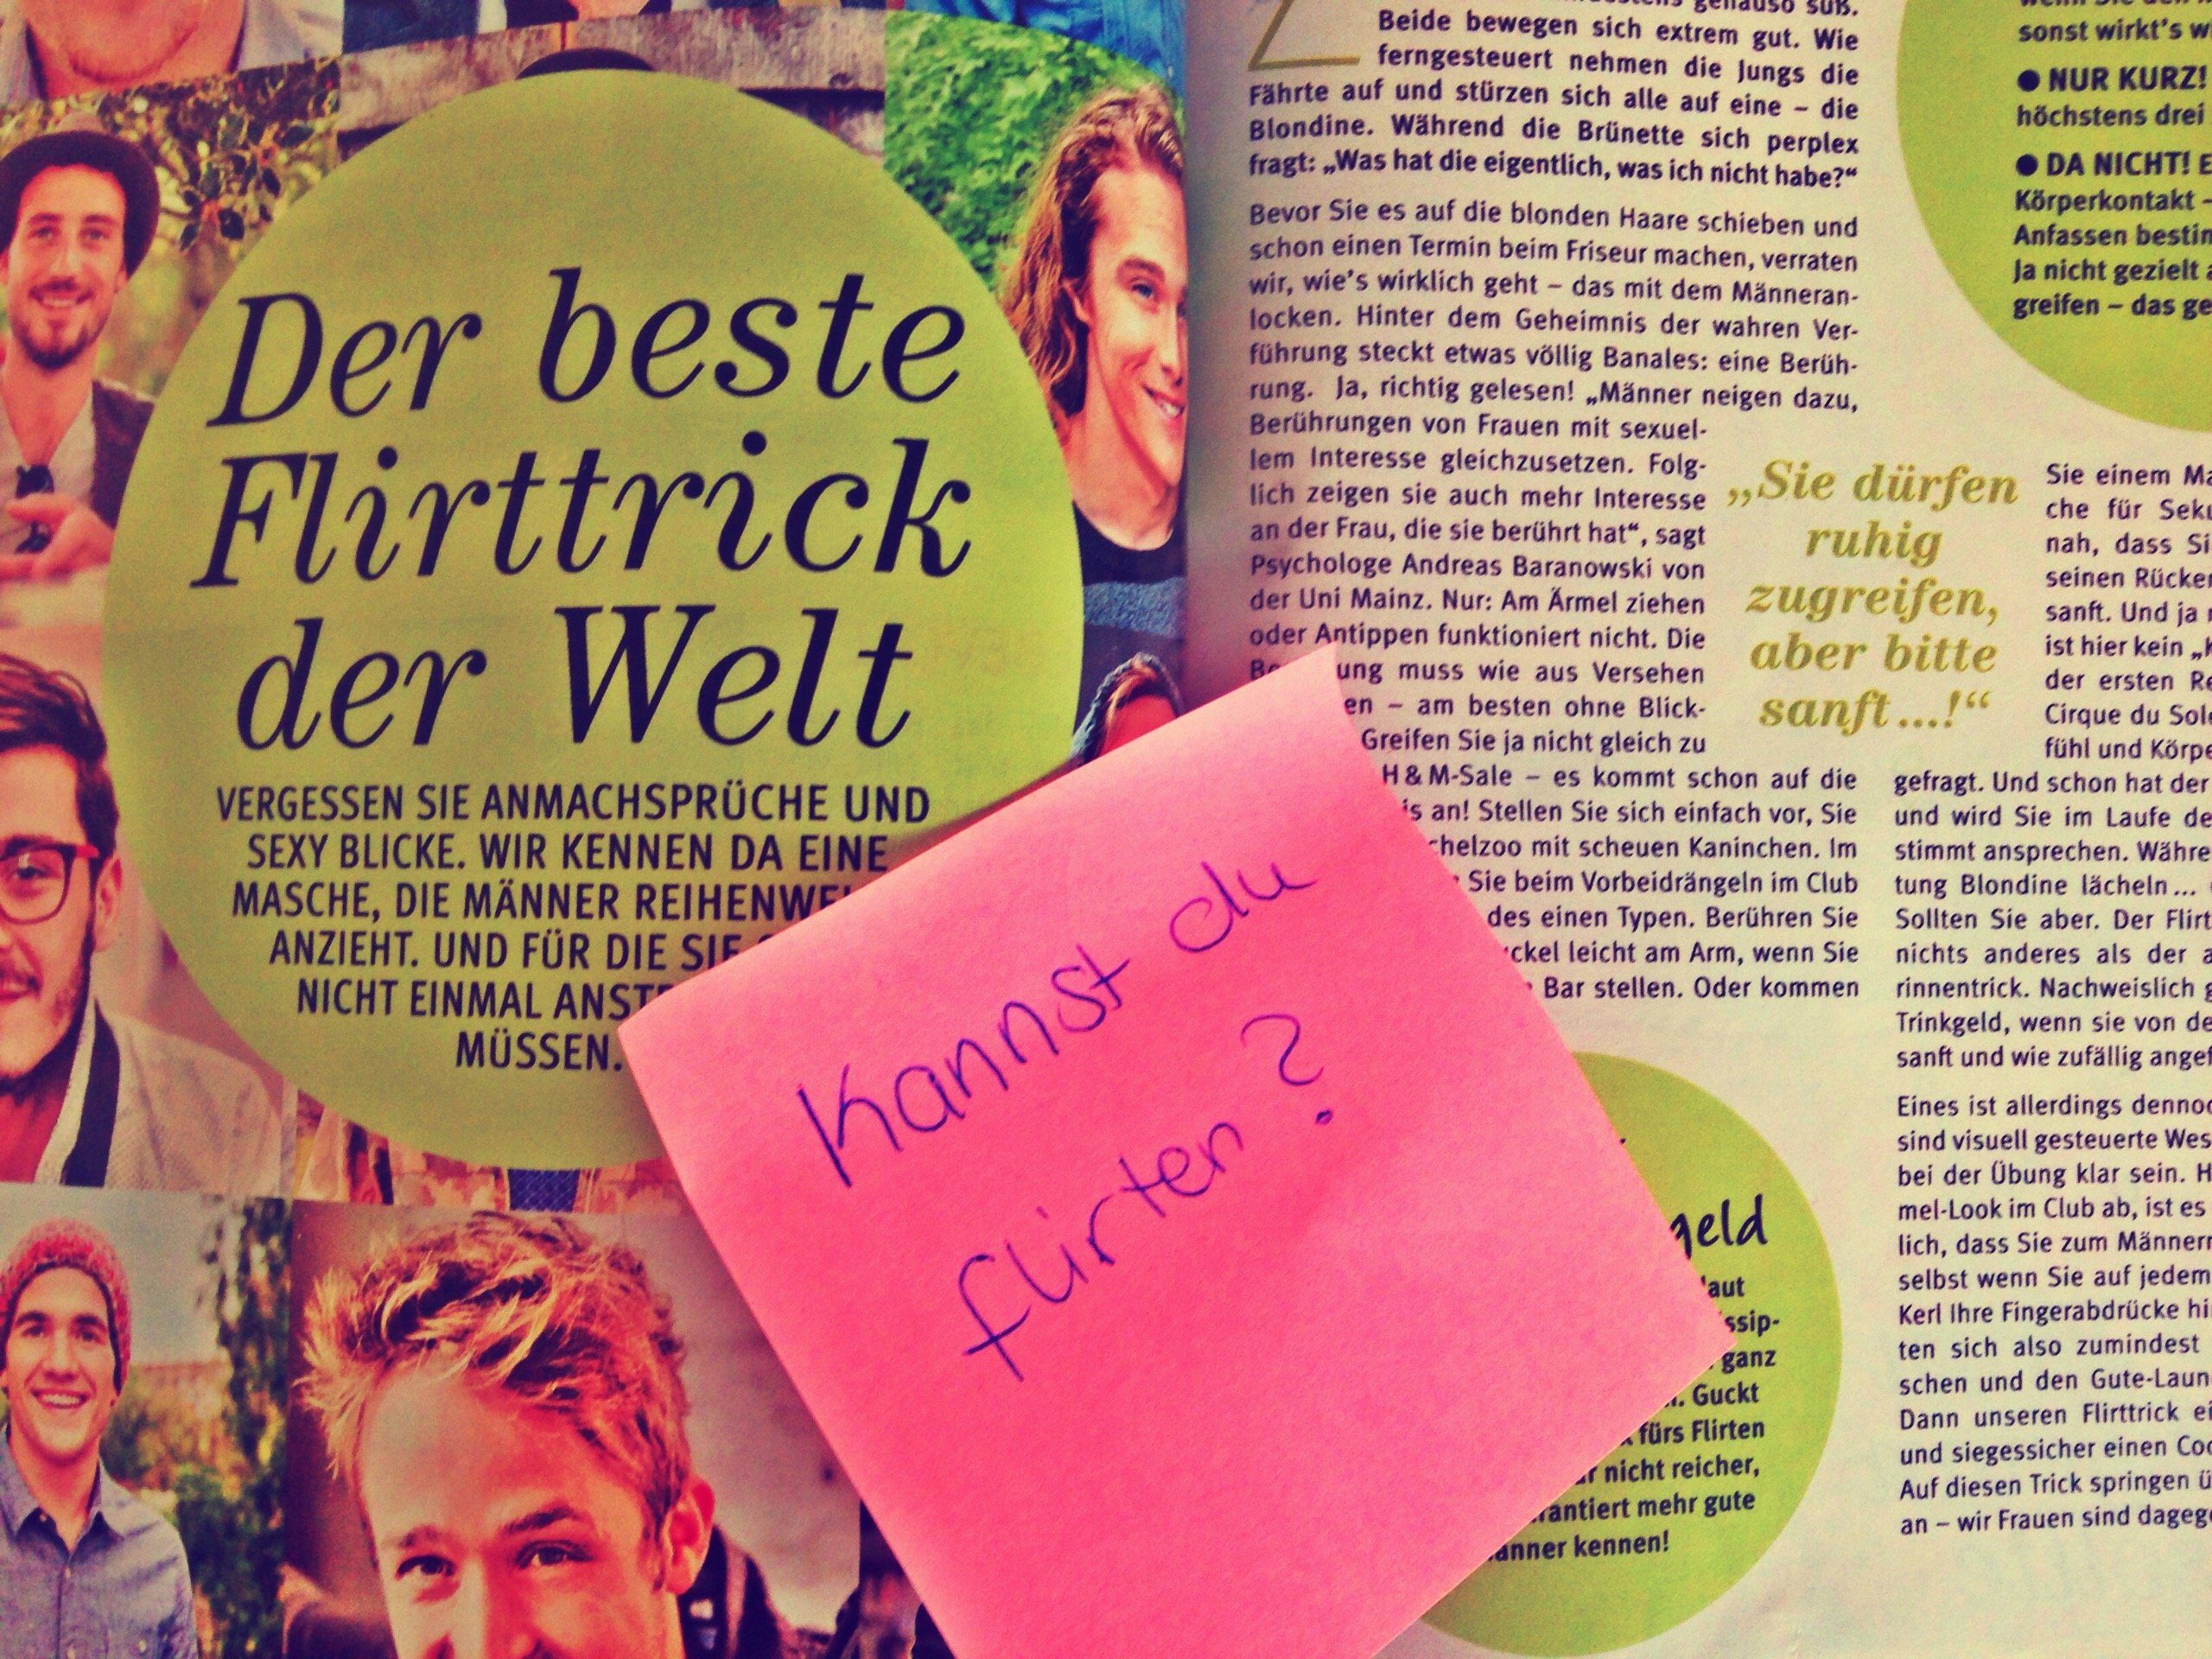 Der beste
Flirttrick
der Welt
VERGESSEN SIE ANMACHSPRÜCHE UND
SEXY BLICKE. WIR KENNEN DA EINE
MASCHE, DIE MÄNNER
ANZIEHT. UND FÜR DIE SIE
NICHT EINMAL
MÜSSEN.
Kannst du
flirten?
genauso süß.
Beide bewegen sich extrem gut. Wie
ferngesteuert nehmen die Jungs die
Fährte auf und stürzen sich alle auf eine – die
Blondine. Während die Brünette sich perplex
fragt: „Was hat die eigentlich, was ich nicht habe?“
Bevor Sie es auf die blonden Haare schieben und
schon einen Termin beim Friseur machen, verraten
wir, wie's wirklich geht – das mit dem Männeran-
locken. Hinter dem Geheimnis der wahren Ver-
führung steckt etwas völlig Banales: eine Berüh-
rung. Ja, richtig gelesen! „Männer neigen dazu,
Berührungen von Frauen mit sexuel-
lem Interesse gleichzusetzen. Folg-
lich zeigen sie auch mehr Interesse
an der Frau, die sie berührt hat“, sagt
Psychologe Andreas Baranowski von
der Uni Mainz. Nur: Am Ärmel ziehen
oder Antippen funktioniert nicht. Die
muss wie aus Versehen
– am besten ohne Blick-
Greifen Sie ja nicht gleich zu
H & M-Sale – es kommt schon auf die
an! Stellen Sie sich einfach vor, Sie
mit scheuen Kaninchen. Im
Sie beim Vorbeidrängeln im Club
des einen Typen. Berühren Sie
leicht am Arm, wenn Sie
Bar stellen. Oder kommen
„Sie dürfen
ruhig
zugreifen,
aber bitte
sanft ...!“
sonst wirkt's
● NUR KURZ!
höchstens drei
● DA NICHT!
Körperkontakt –
Anfassen
Ja nicht gezielt
greifen – das
Sie einem
che für
nah, dass
seinen
sanft. Und ja
ist hier kein
der ersten
Cirque du
fühl und
gefragt. Und schon hat der
und wird Sie im Laufe
stimmt ansprechen.
tung Blondine lächeln ...
Sollten Sie aber. Der
nichts anderes als der
rinnentrick. Nachweislich
Trinkgeld, wenn sie von
sanft und wie zufällig
Eines ist allerdings
sind visuell gesteuerte
bei der Übung klar sein.
mel-Look im Club ab, ist es
lich, dass Sie zum
selbst wenn Sie auf jedem
Kerl Ihre Fingerabdrücke
ten sich also zumindest
schen und den
Dann unseren Flirttrick
und siegessicher einen
Auf diesen Trick springen
an – wir Frauen sind
ganz
Guckt
fürs Flirten
nicht reicher,
mehr gute
kennen!